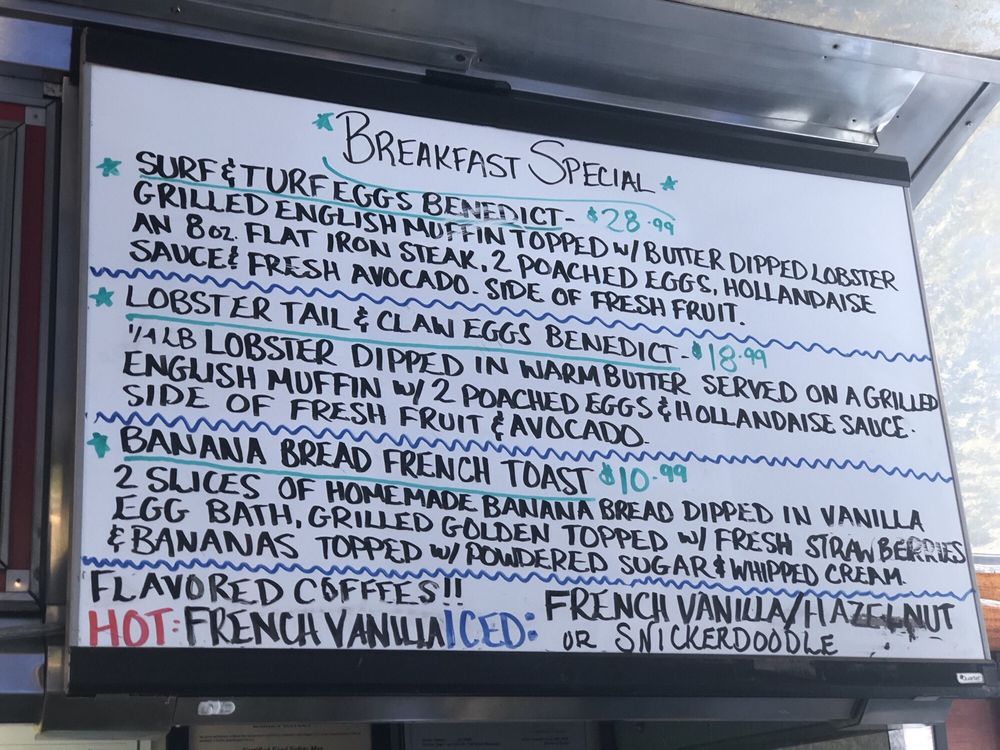 BREAKFAST SPECIAL
SURF & TURF EGGS BENEDICT - $28.99
GRILLED ENGLISH MUFFIN TOPPED W/ BUTTER DIPPED LOBSTER
AN 8 oz. FLAT IRON STEAK, 2 POACHED EGGS, HOLLANDAISE
SAUCE & FRESH AVOCADO. SIDE OF FRESH FRUIT.
LOBSTER TAIL & CLAW EGGS BENEDICT - $18.99
1/4 LB LOBSTER DIPPED IN WARM BUTTER SERVED ON A GRILLED
ENGLISH MUFFIN W/ 2 POACHED EGGS & HOLLANDAISE SAUCE.
SIDE OF FRESH FRUIT & AVOCADO.
BANANA BREAD FRENCH TOAST $10.99
2 SLICES OF HOMEMADE BANANA BREAD DIPPED IN VANILLA
EGG BATH, GRILLED GOLDEN TOPPED W/ FRESH STRAWBERRIES
& BANANAS TOPPED W/ POWDERED SUGAR & WHIPPED CREAM.
FLAVORED COFFEES!!
HOT: FRENCH VANILLA ICED: FRENCH VANILLA/HAZELNUT
OR SNICKERDOODLE
Quartet